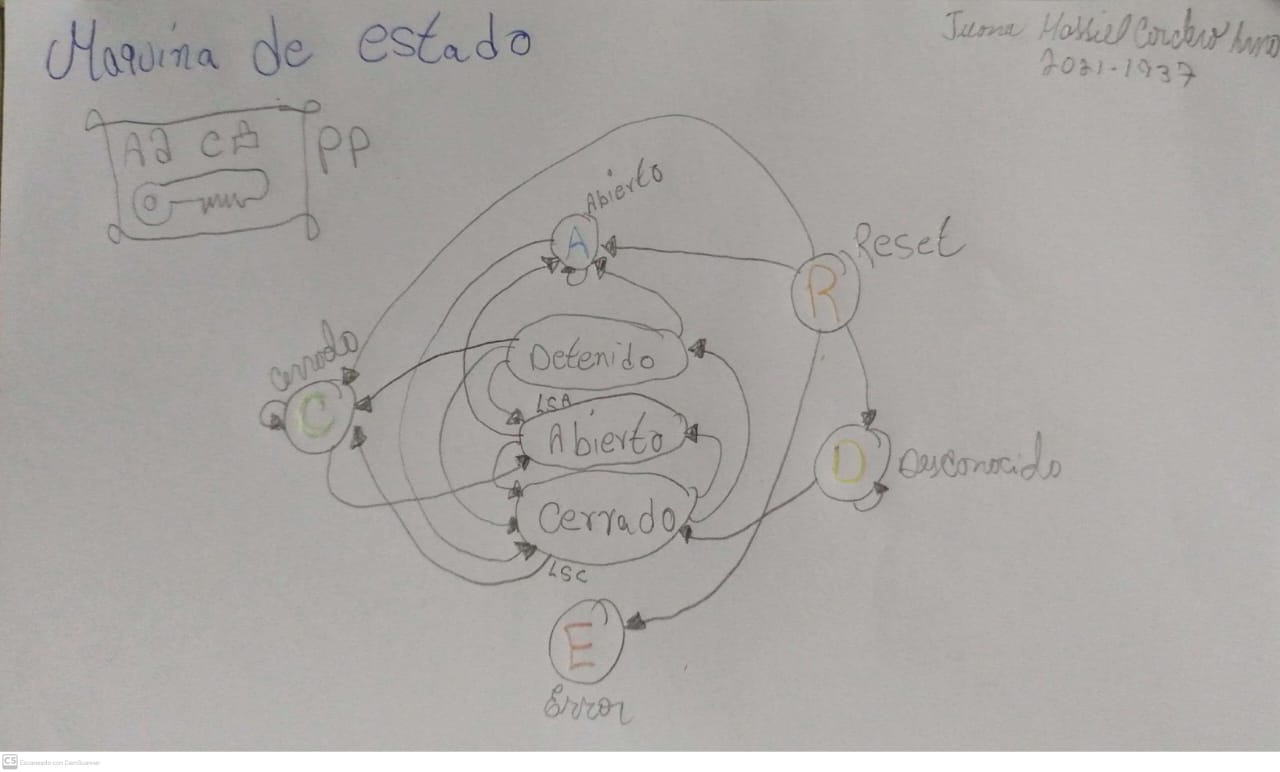 Maquina de estado
Juana Massiel Cordero
2021-1937
PP
Abierto
A
Reset
R
Cerrado
C
Detenido
LSA
Abierto
D
Desconocido
Cerrado
LSC
E
Error
CS Escaneado con CamScanner